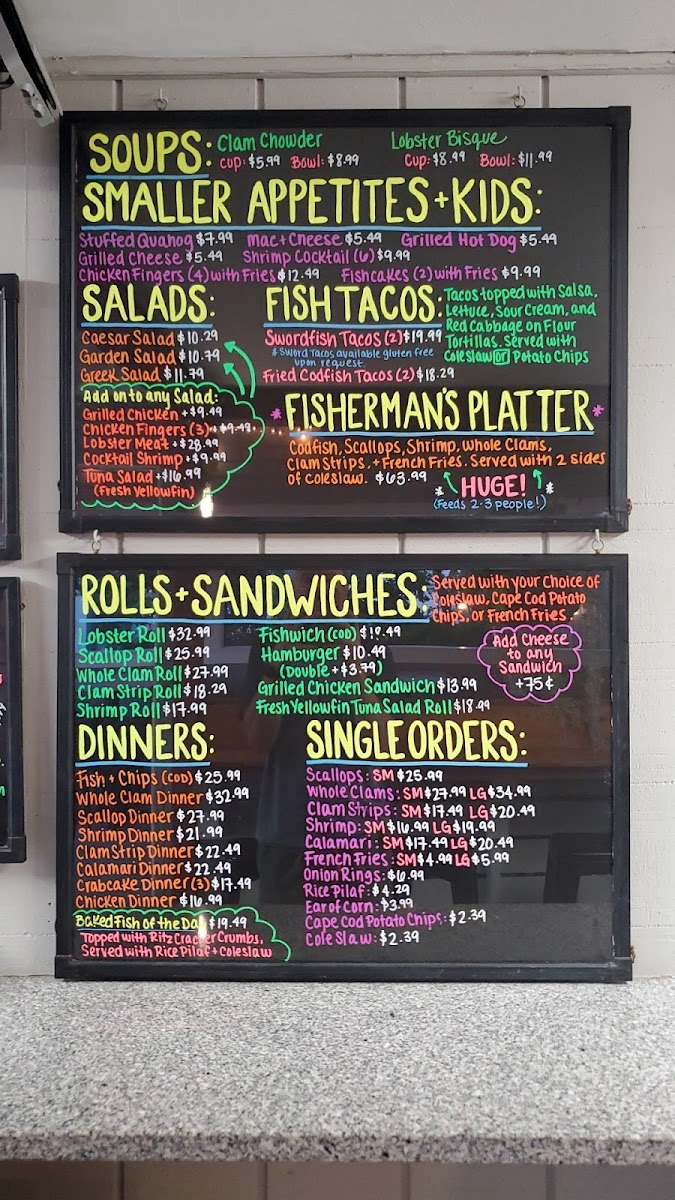 SOUPS: Clam Chowder Lobster Bisque
Cup: $5.99 Bowl: $8.99 Cup: $8.99 Bowl: $11.99
SMALLER APPETITES + KIDS:
Stuffed Quahog $7.99 Mac + Cheese $5.49 Grilled Hot Dog $5.49
Grilled Cheese $5.49 Shrimp Cocktail (6) $9.99
Chicken Fingers (4) with Fries $12.99 Fishcakes (2) with Fries $9.99
SALADS:
Caesar Salad $10.29
Garden Salad $10.79
Greek Salad $11.79
Add on to any Salad:
Grilled Chicken +$9.49
Chicken Fingers (3) +$9.49
Lobster Meat +$28.99
Cocktail Shrimp +$9.99
Tuna Salad +$16.99
(Fresh Yellowfin)
FISH TACOS:
Swordfish Tacos (2) $19.99
* Sword Tacos available gluten free
upon request
Fried Codfish Tacos (2) $18.29
Tacos topped with Salsa,
Lettuce, Sour Cream, and
Red Cabbage on Flour
Tortillas. Served with
Coleslaw or Potato Chips
* FISHERMAN'S PLATTER *
Codfish, Scallops, Shrimp, Whole Clams,
Clam Strips, + French Fries. Served with 2 sides
of coleslaw. $63.99
* HUGE! *
(Feeds 2-3 people!)
ROLLS + SANDWICHES:
Served with your choice of
Coleslaw, Cape Cod Potato
Chips, or French Fries.
Lobster Roll $32.99
Scallop Roll $25.99
Whole Clam Roll $27.99
Clam Strip Roll $18.29
Shrimp Roll $17.99
Fishwich (COD) $18.49
Hamburger $10.49
(Double +$3.79)
Grilled Chicken Sandwich $13.99
Fresh Yellowfin Tuna Salad Roll $18.99
Add Cheese
to any
Sandwich
+75¢
DINNERS:
Fish + Chips (COD) $25.99
Whole Clam Dinner $32.99
Scallop Dinner $27.99
Shrimp Dinner $21.99
Clam Strip Dinner $22.49
Calamari Dinner $22.49
Crabcake Dinner (3) $17.49
Chicken Dinner $16.99
Baked Fish of the Day $19.49
Topped with Ritz Cracker Crumbs,
Served with Rice Pilaf + Coleslaw
SINGLE ORDERS:
Scallops: SM $25.99
Whole Clams: SM $27.99 LG $34.99
Clam Strips: SM $17.49 LG $20.49
Shrimp: SM $16.99 LG $19.99
Calamari: SM $17.49 LG $20.49
French Fries: SM $4.99 LG $5.99
Onion Rings: $6.99
Rice Pilaf: $4.29
Ear of Corn: $3.99
Cape Cod Potato Chips: $2.39
Cole Slaw: $2.39